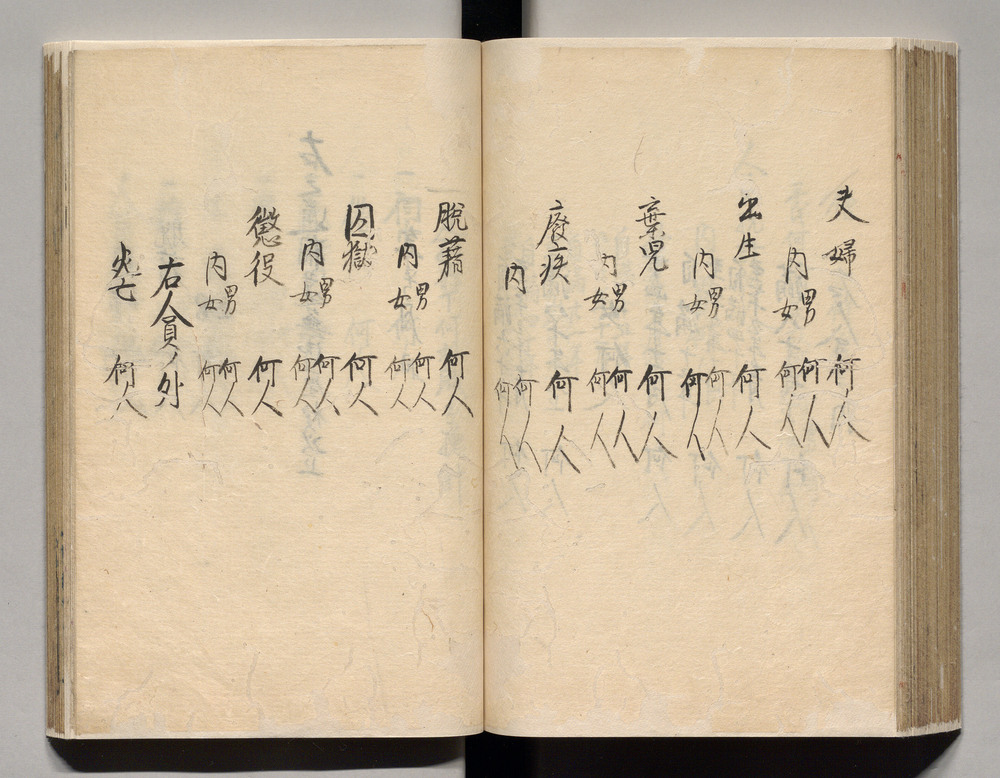 夫婦 何人
内 男 何人
女 何人
出生 何人
内 男 何人
女 何人
棄児 何人
内 男 何人
女 何人
廃疾 何人
内 何人
何人
脱籍 何人
内 男 何人
女 何人
囚獄 何人
内 男 何人
女 何人
懲役 何人
内 男 何人
女 何人
右人員ノ外
死亡 何人